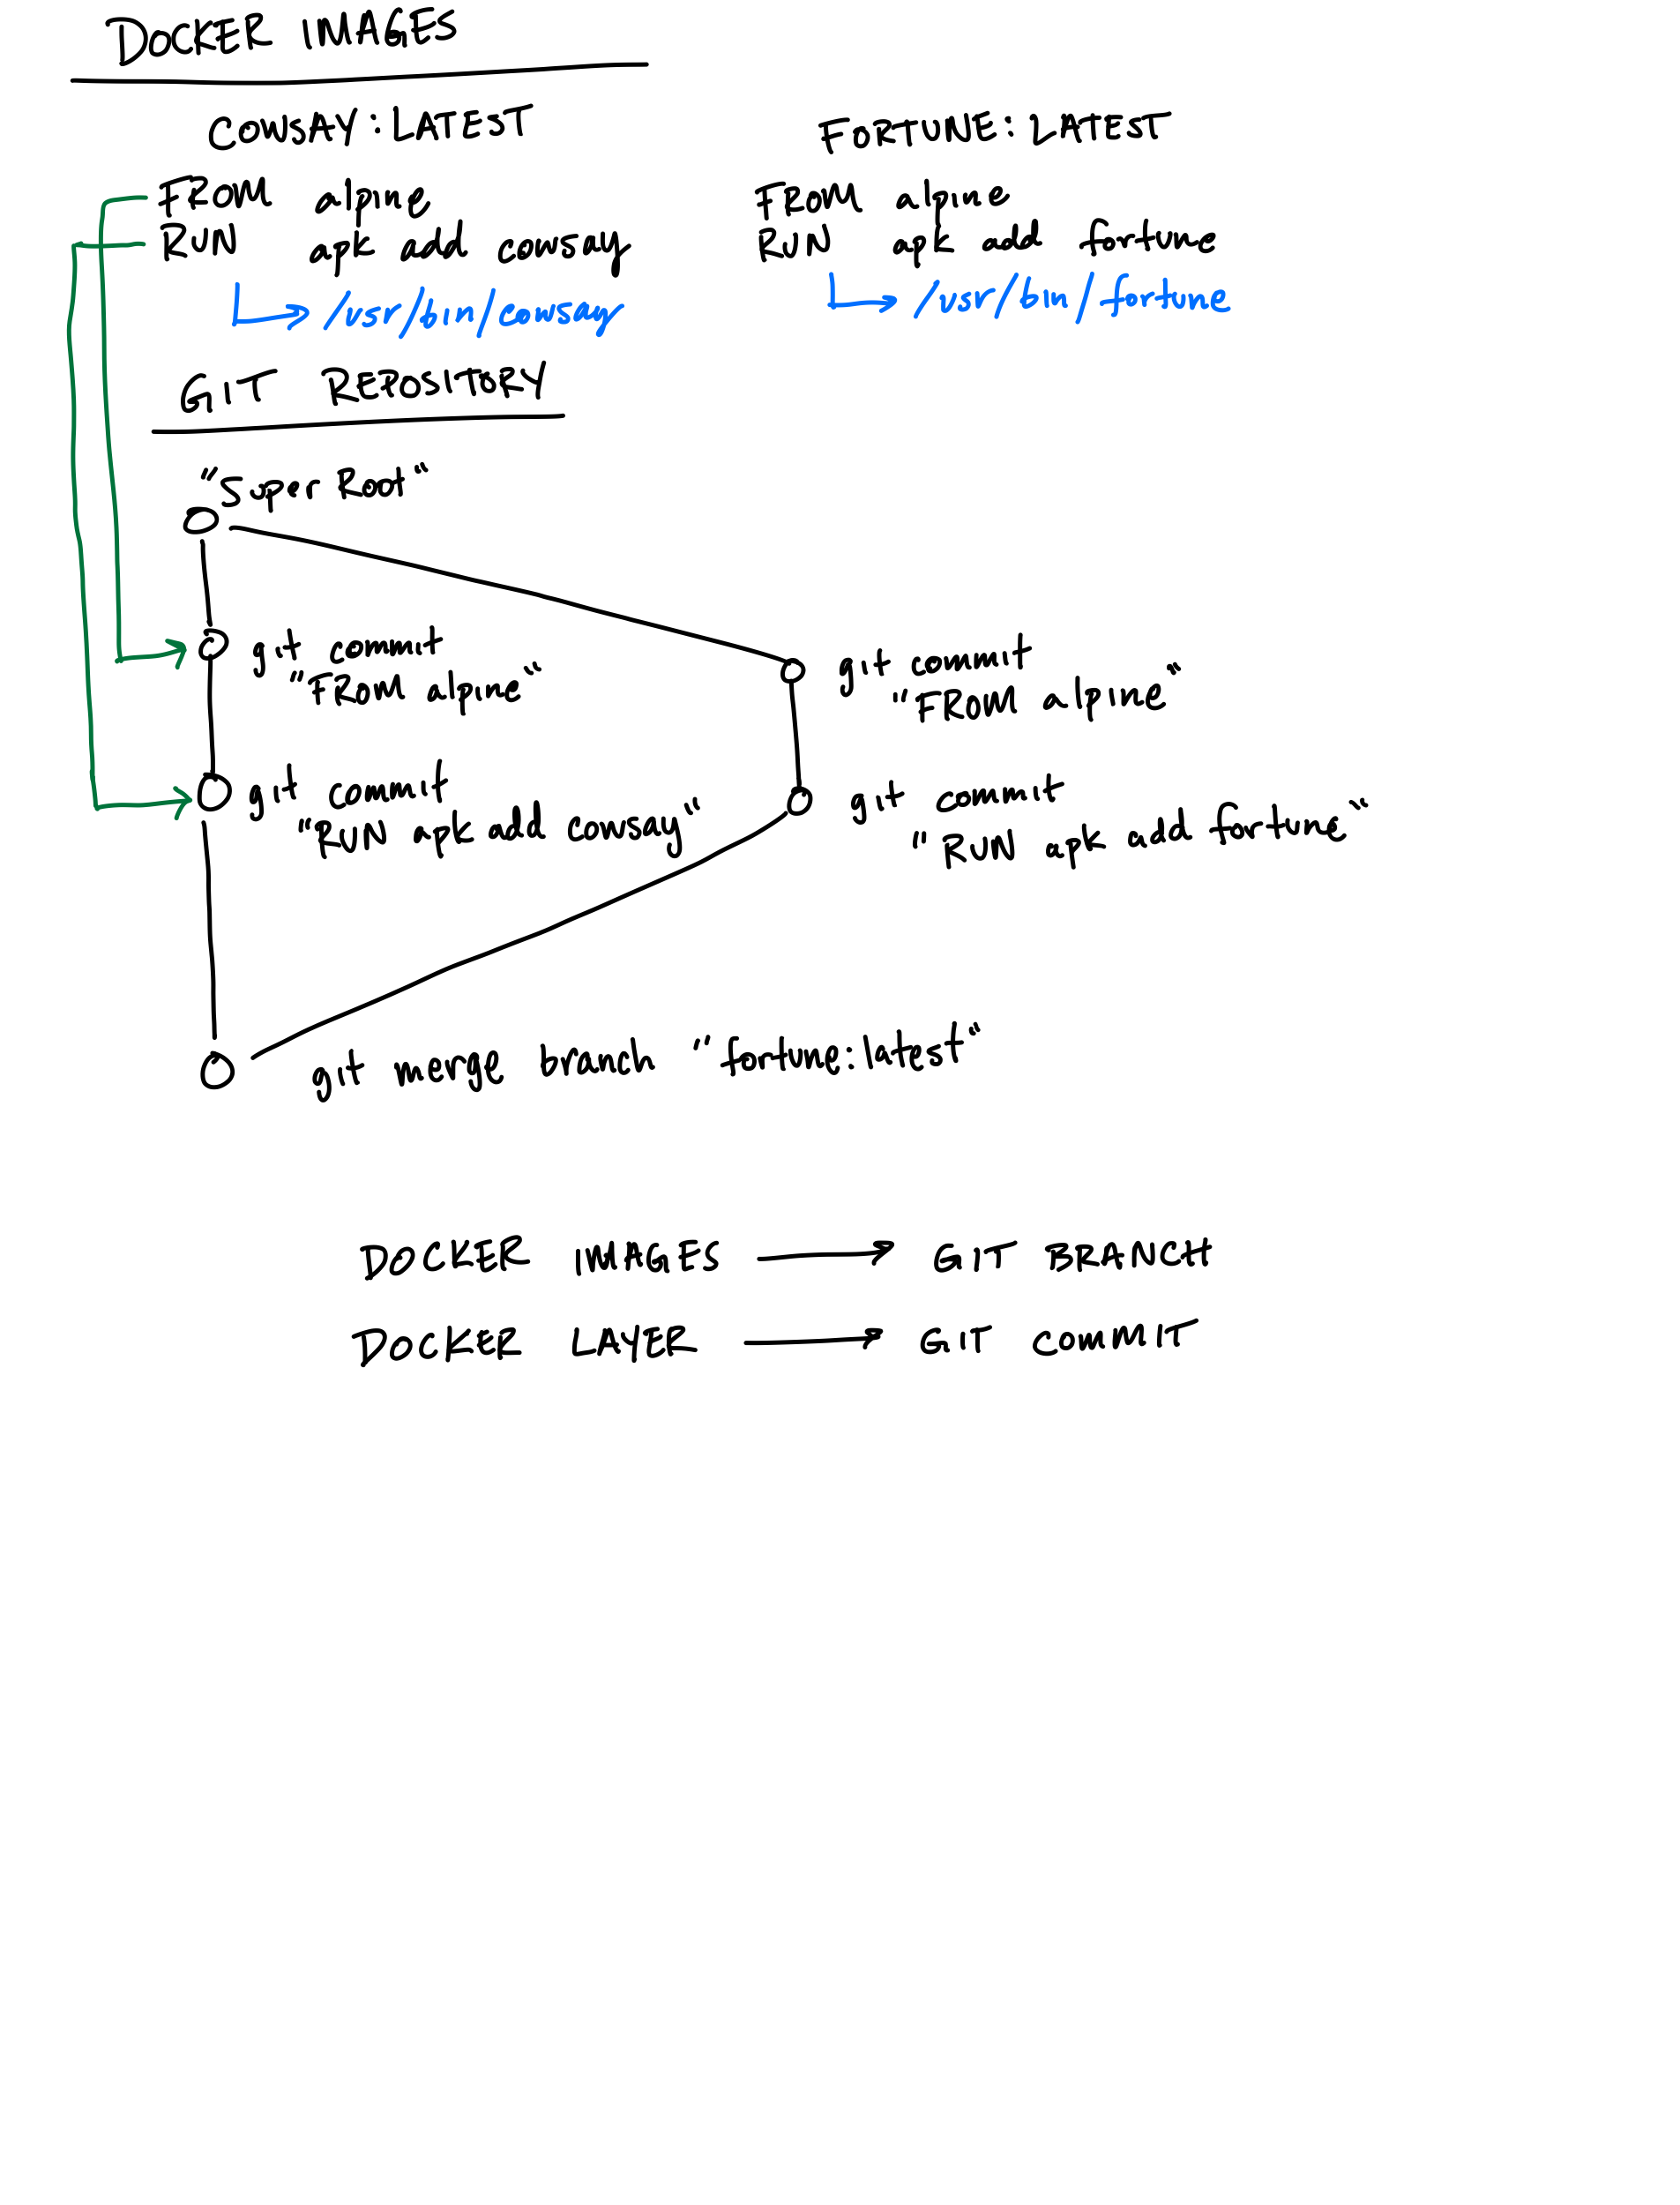 DOCKER IMAGES
COWSAY:LATEST
FROM alpine
RUN apk add cowsay
/usr/bin/cowsay
FORTUNE:LATEST
FROM alpine
RUN apk add fortune
/usr/bin/fortune
GIT REPOSITORY
"Super Root"
git commit
"FROM alpine"
git commit
"FROM alpine"
git commit
"RUN apk add cowsay"
git commit
"RUN apk add fortune"
git merge branch "fortune:latest"
DOCKER IMAGES → GIT BRANCH
DOCKER LAYER → GIT COMMIT